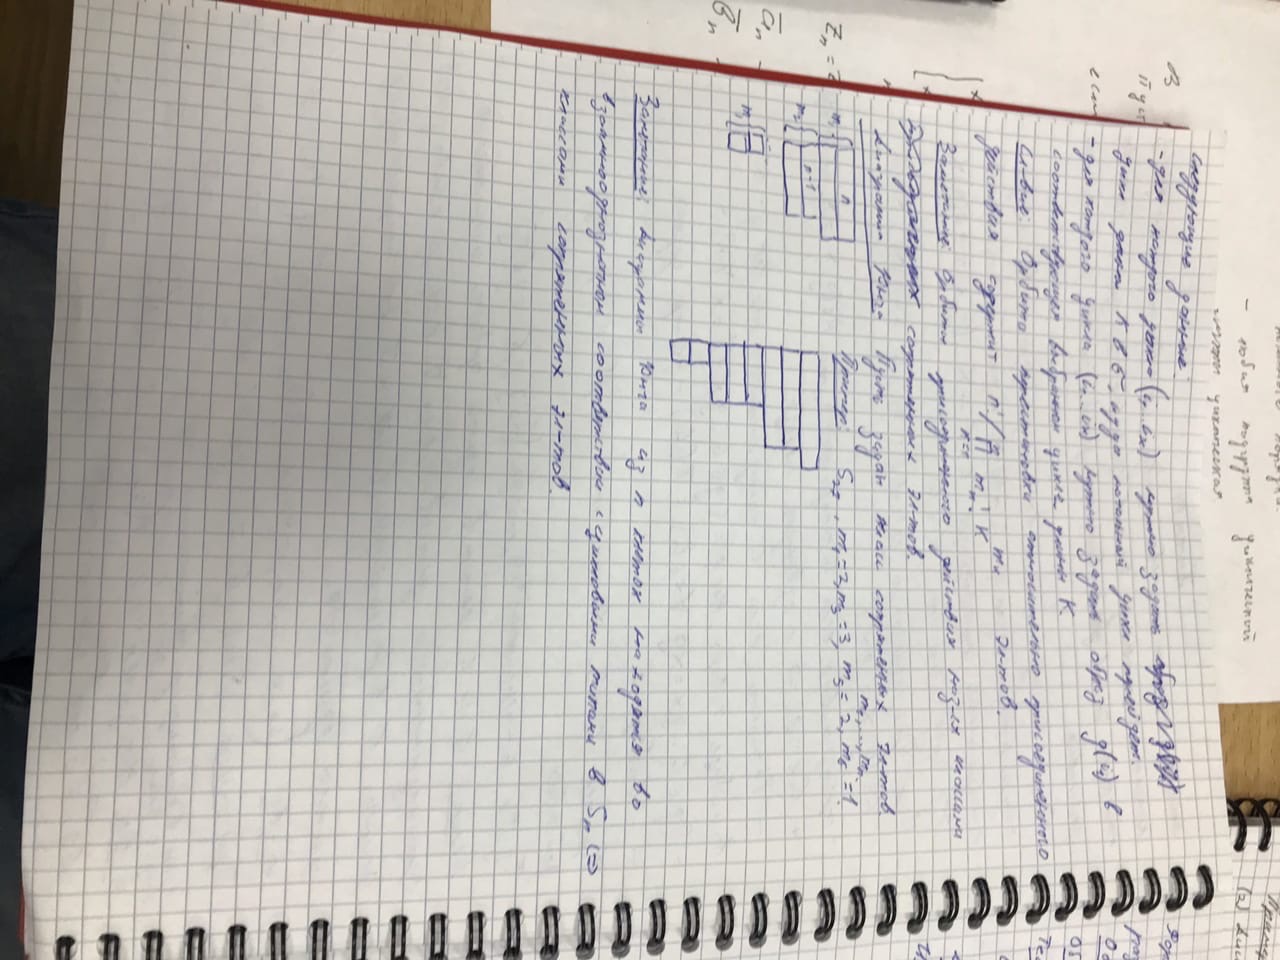 - любая подгруппа циклической
циклическая.
следующие данные:
- для каждого цикла (i₁...iₖ) нужно задать
цикл длины K в σ, куда начальный цикл перейдет.
- для каждого цикла (i₁...iₖ) нужно задать образ g(i₁) в
соответствующем выбранном цикле длины K.
Сл-вие: Орбита перестановки относительно присоединенного
действия содержит n!/∏ mₖ! K^mₖ эл-тов.
Замечание: Орбиты присоединенного действия наз-ся классами
сопряженных эл-тов.
Диаграмма Юнга Пусть задан класс сопряженных эл-тов.
m₁,...,mₙ.
Пример: S₂₇, m₁=2, m₃=3, m₅=2, m₆=1.
mₙ n
m₂ n-1
m₁
Замечание: Диаграммы Юнга из n клеток находятся во
взаимооднозначном соответствии с цикловыми типами в Sₙ <=>
классами сопряженных эл-тов.
В
Пуст
если
Zₙ =
aₙ
bₙ
Пример
(2)